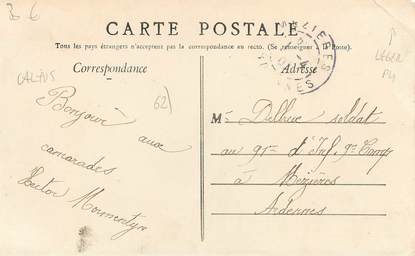 B 6
CARTE POSTALE
Tous les pays étrangers n'acceptent pas la correspondance au recto. (Se renseigner à la Poste).
Correspondance
Adresse
MEZIERES
CALAIS
62)
LEGER
Bonjour aux
camarades
Hector
Mr Delhaye soldat
au 91e d'Inf. 9e Comp
à Mézières
Ardennes